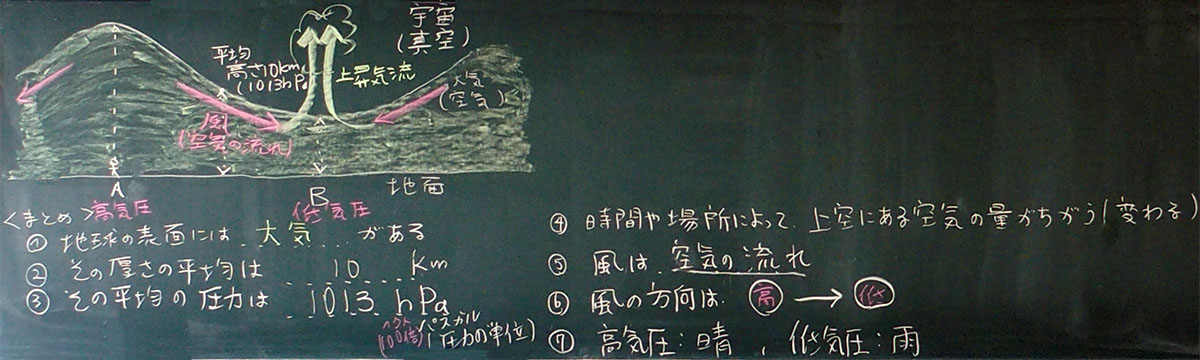 宇宙
(真空)
平均
高さ10km
(1013hPa)
上昇気流
大気
(空気)
風
(空気の流れ)
A
B
地面
高気圧
低気圧
<まとめ>
① 地球の表面には 大気 がある
② その厚さの平均は 10 Km
③ その平均の圧力は 1013 hPa
ヘクト パスカル
(100倍) 圧力の単位)
④ 時間や場所によって、上空にある空気の量がちがう(変わる)
⑤ 風は 空気の流れ
⑥ 風の方向は 高 → 低
⑦ 高気圧:晴、低気圧:雨